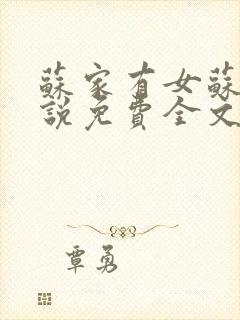 蘇家有女蘇
說免費全文
覃勇